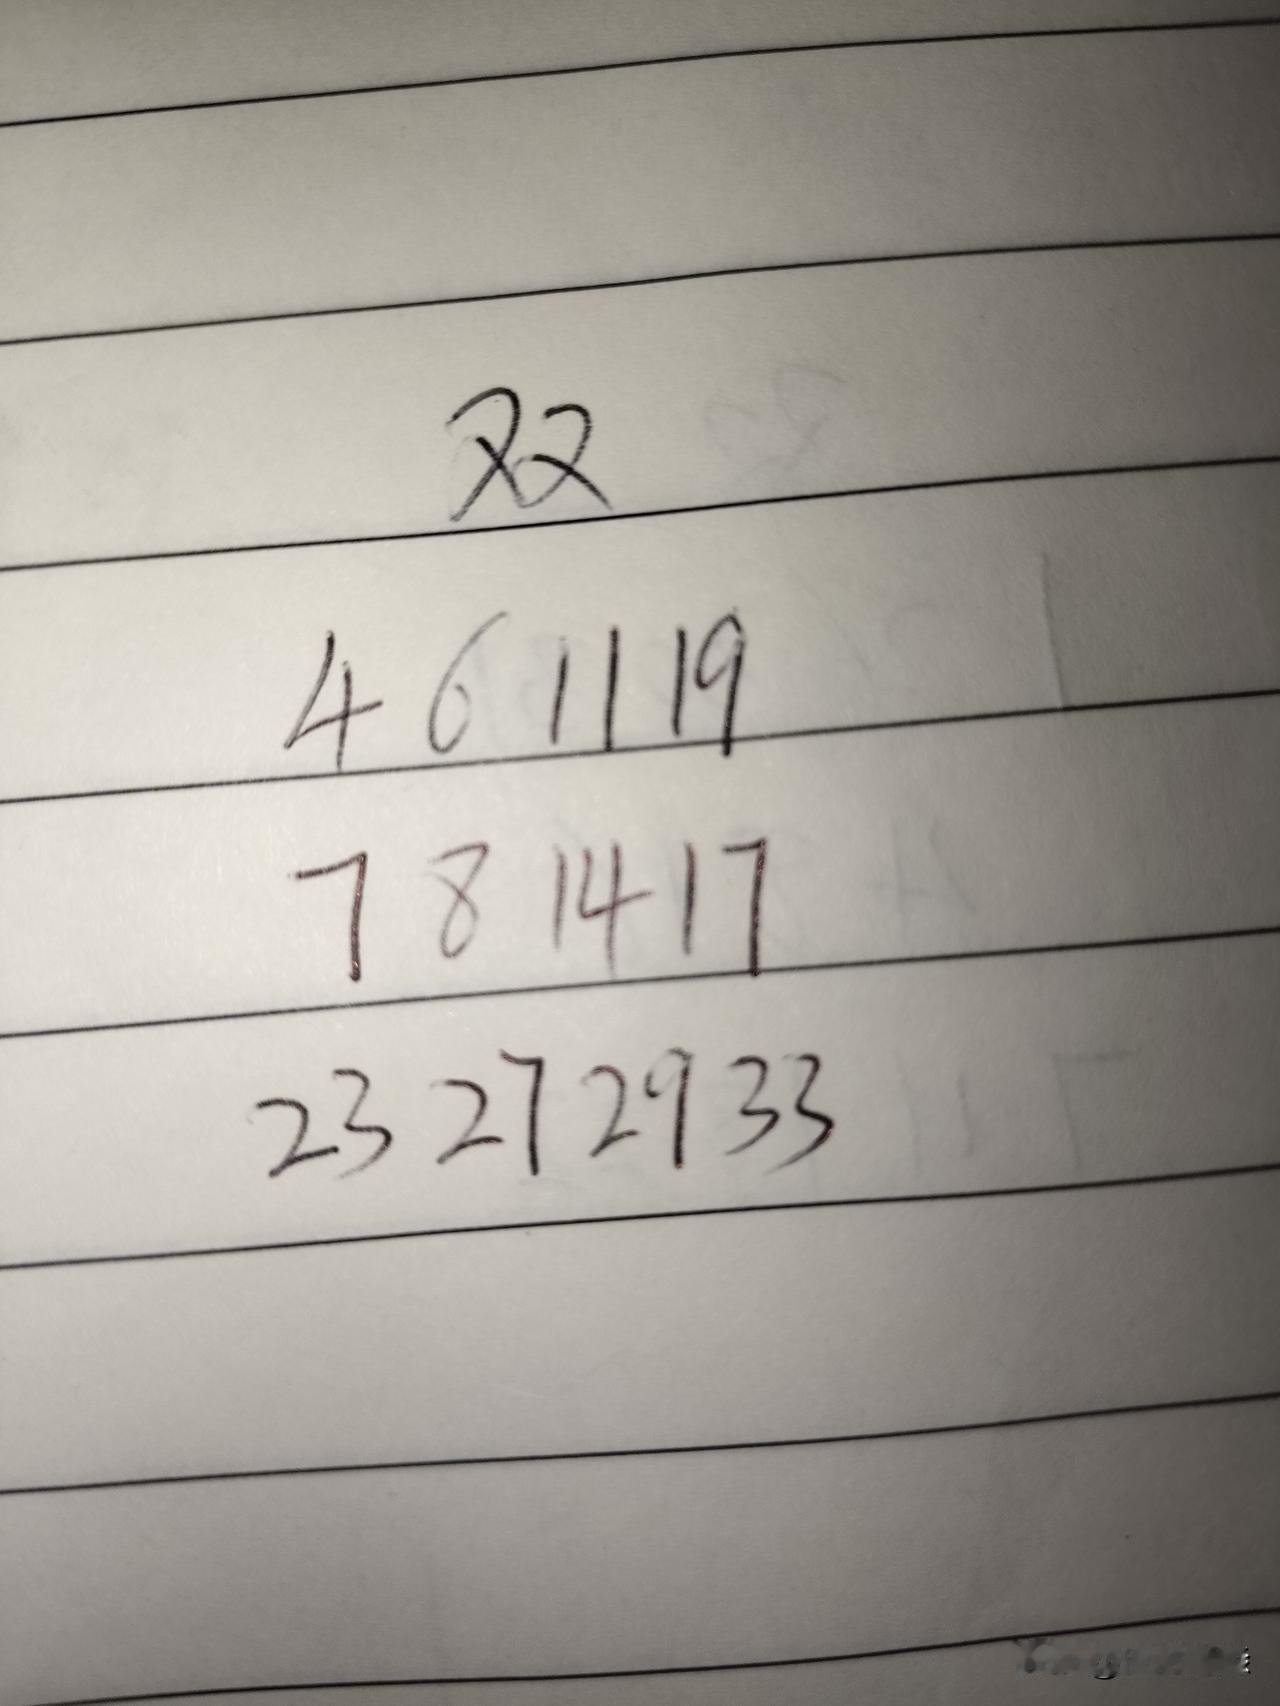 双
4 6 11 19
7 8 14 17
23 27 29 33